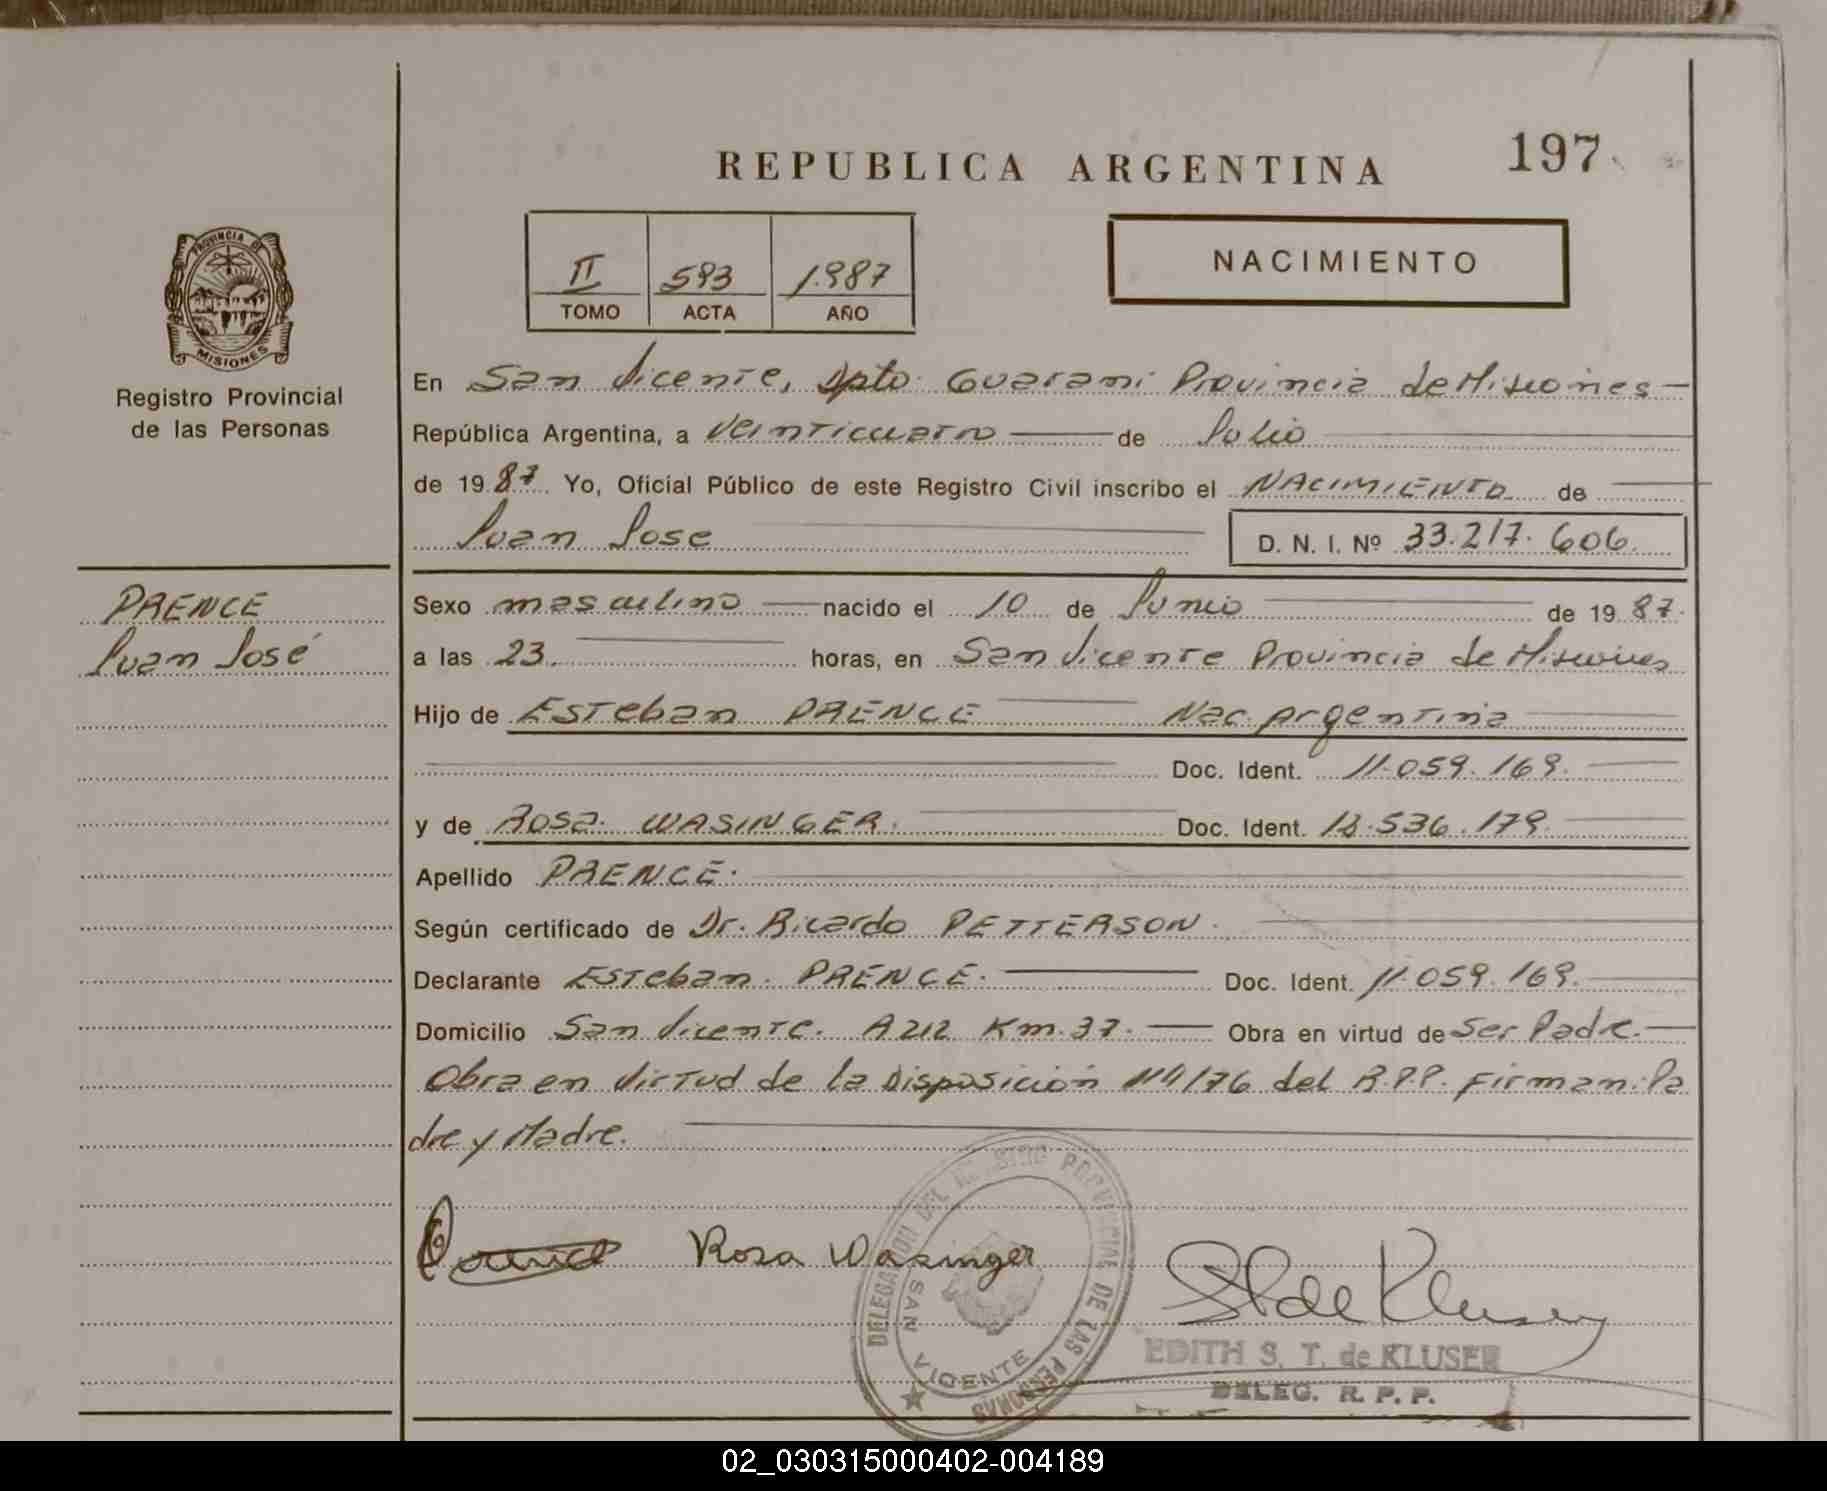 REPUBLICA ARGENTINA
197
PROVINCIA DE
MISIONES
Registro Provincial
de las Personas
II 593 1.987
TOMO ACTA AÑO
NACIMIENTO
En San Vicente, Dpto Guarani Provincia de Misiones
República Argentina, a veinticuatro de Julio
de 1987 Yo, Oficial Público de este Registro Civil inscribo el NACIMIENTO de
Juan Jose D. N. I. Nº 33.217.606.
PRENCE
Juan José
Sexo masculino nacido el 10 de Junio de 1987.
a las 23. horas, en San Vicente Provincia de Misiones
Hijo de Esteban PRENCE Nac. Argentina
Doc. Ident. 11.059.169.
y de Rosa WASINGER. Doc. Ident. 18.536.179.
Apellido PRENCE.
Según certificado de Dr. Ricardo PETTERSON.
Declarante Esteban PRENCE. Doc. Ident. 11.059.169.
Domicilio San Vicente. Km. 37. Obra en virtud de Ser Padre.
Obra en virtud de la Disposición del R.P.P. Firman: Pa
dre y Madre.
Rosa Wasinger
DELEGACION DEL REGISTRO PROVINCIAL DE LAS PERSONAS
SAN VICENTE
de Kluser
EDITH S. T. de KLUSER
DELEG. R. P. P.
02_030315000402-004189